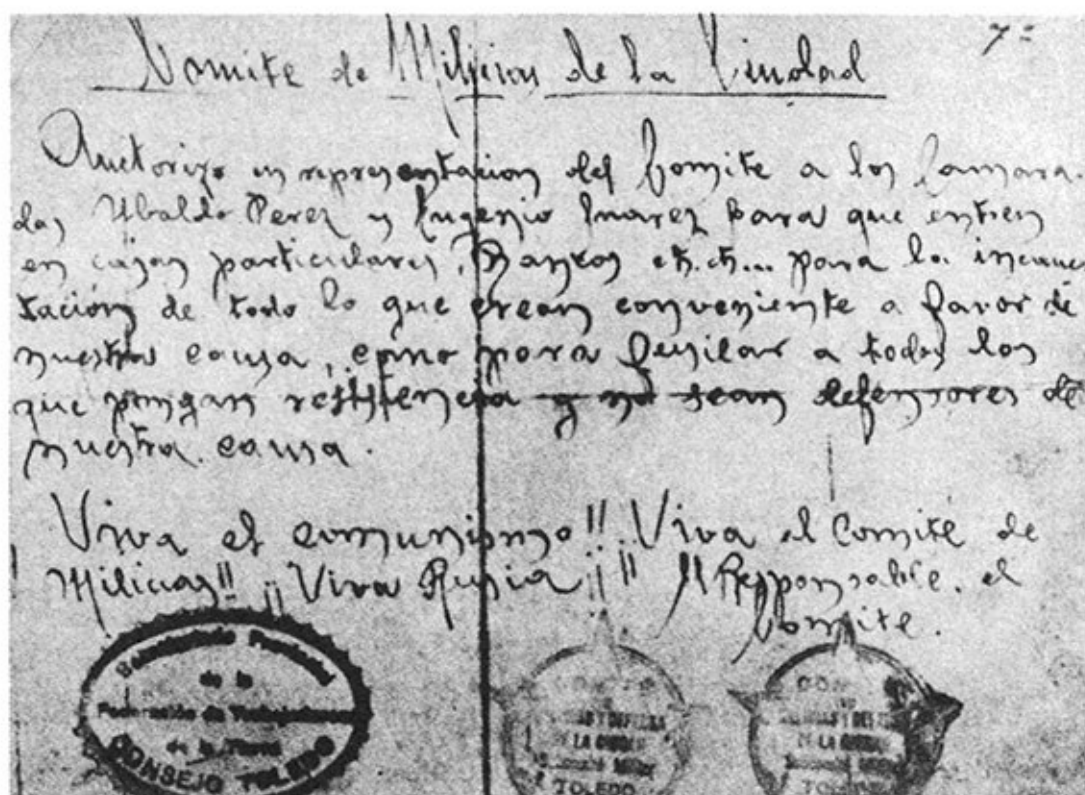 7ª
Comite de Milicias de la Ciudad
Auctorizo en representacion del Comite a los Camara-
das Ubaldo Perez y Eugenio Suarez para que entren
en casas particulares, Bancos eth. eth... para la incauc-
tación de todo lo que crean conveniente a favor de
nuestra causa, como para fusilar a todos los
que pongan resistencia y no sean defensores de
nuestra causa.
Viva el comunismo!! Viva el Comite de
Milicias!! ¡¡Viva Rusia!! El Responsable. el
Comite.
Secretariado Provincial
de la
Federación de Trabajadores
de la Tierra
CONSEJO TOLEDO
MILICIAS Y DEFENSA
DE LA CIUDAD
TOLEDO
DE LA CIUDAD
TOLEDO